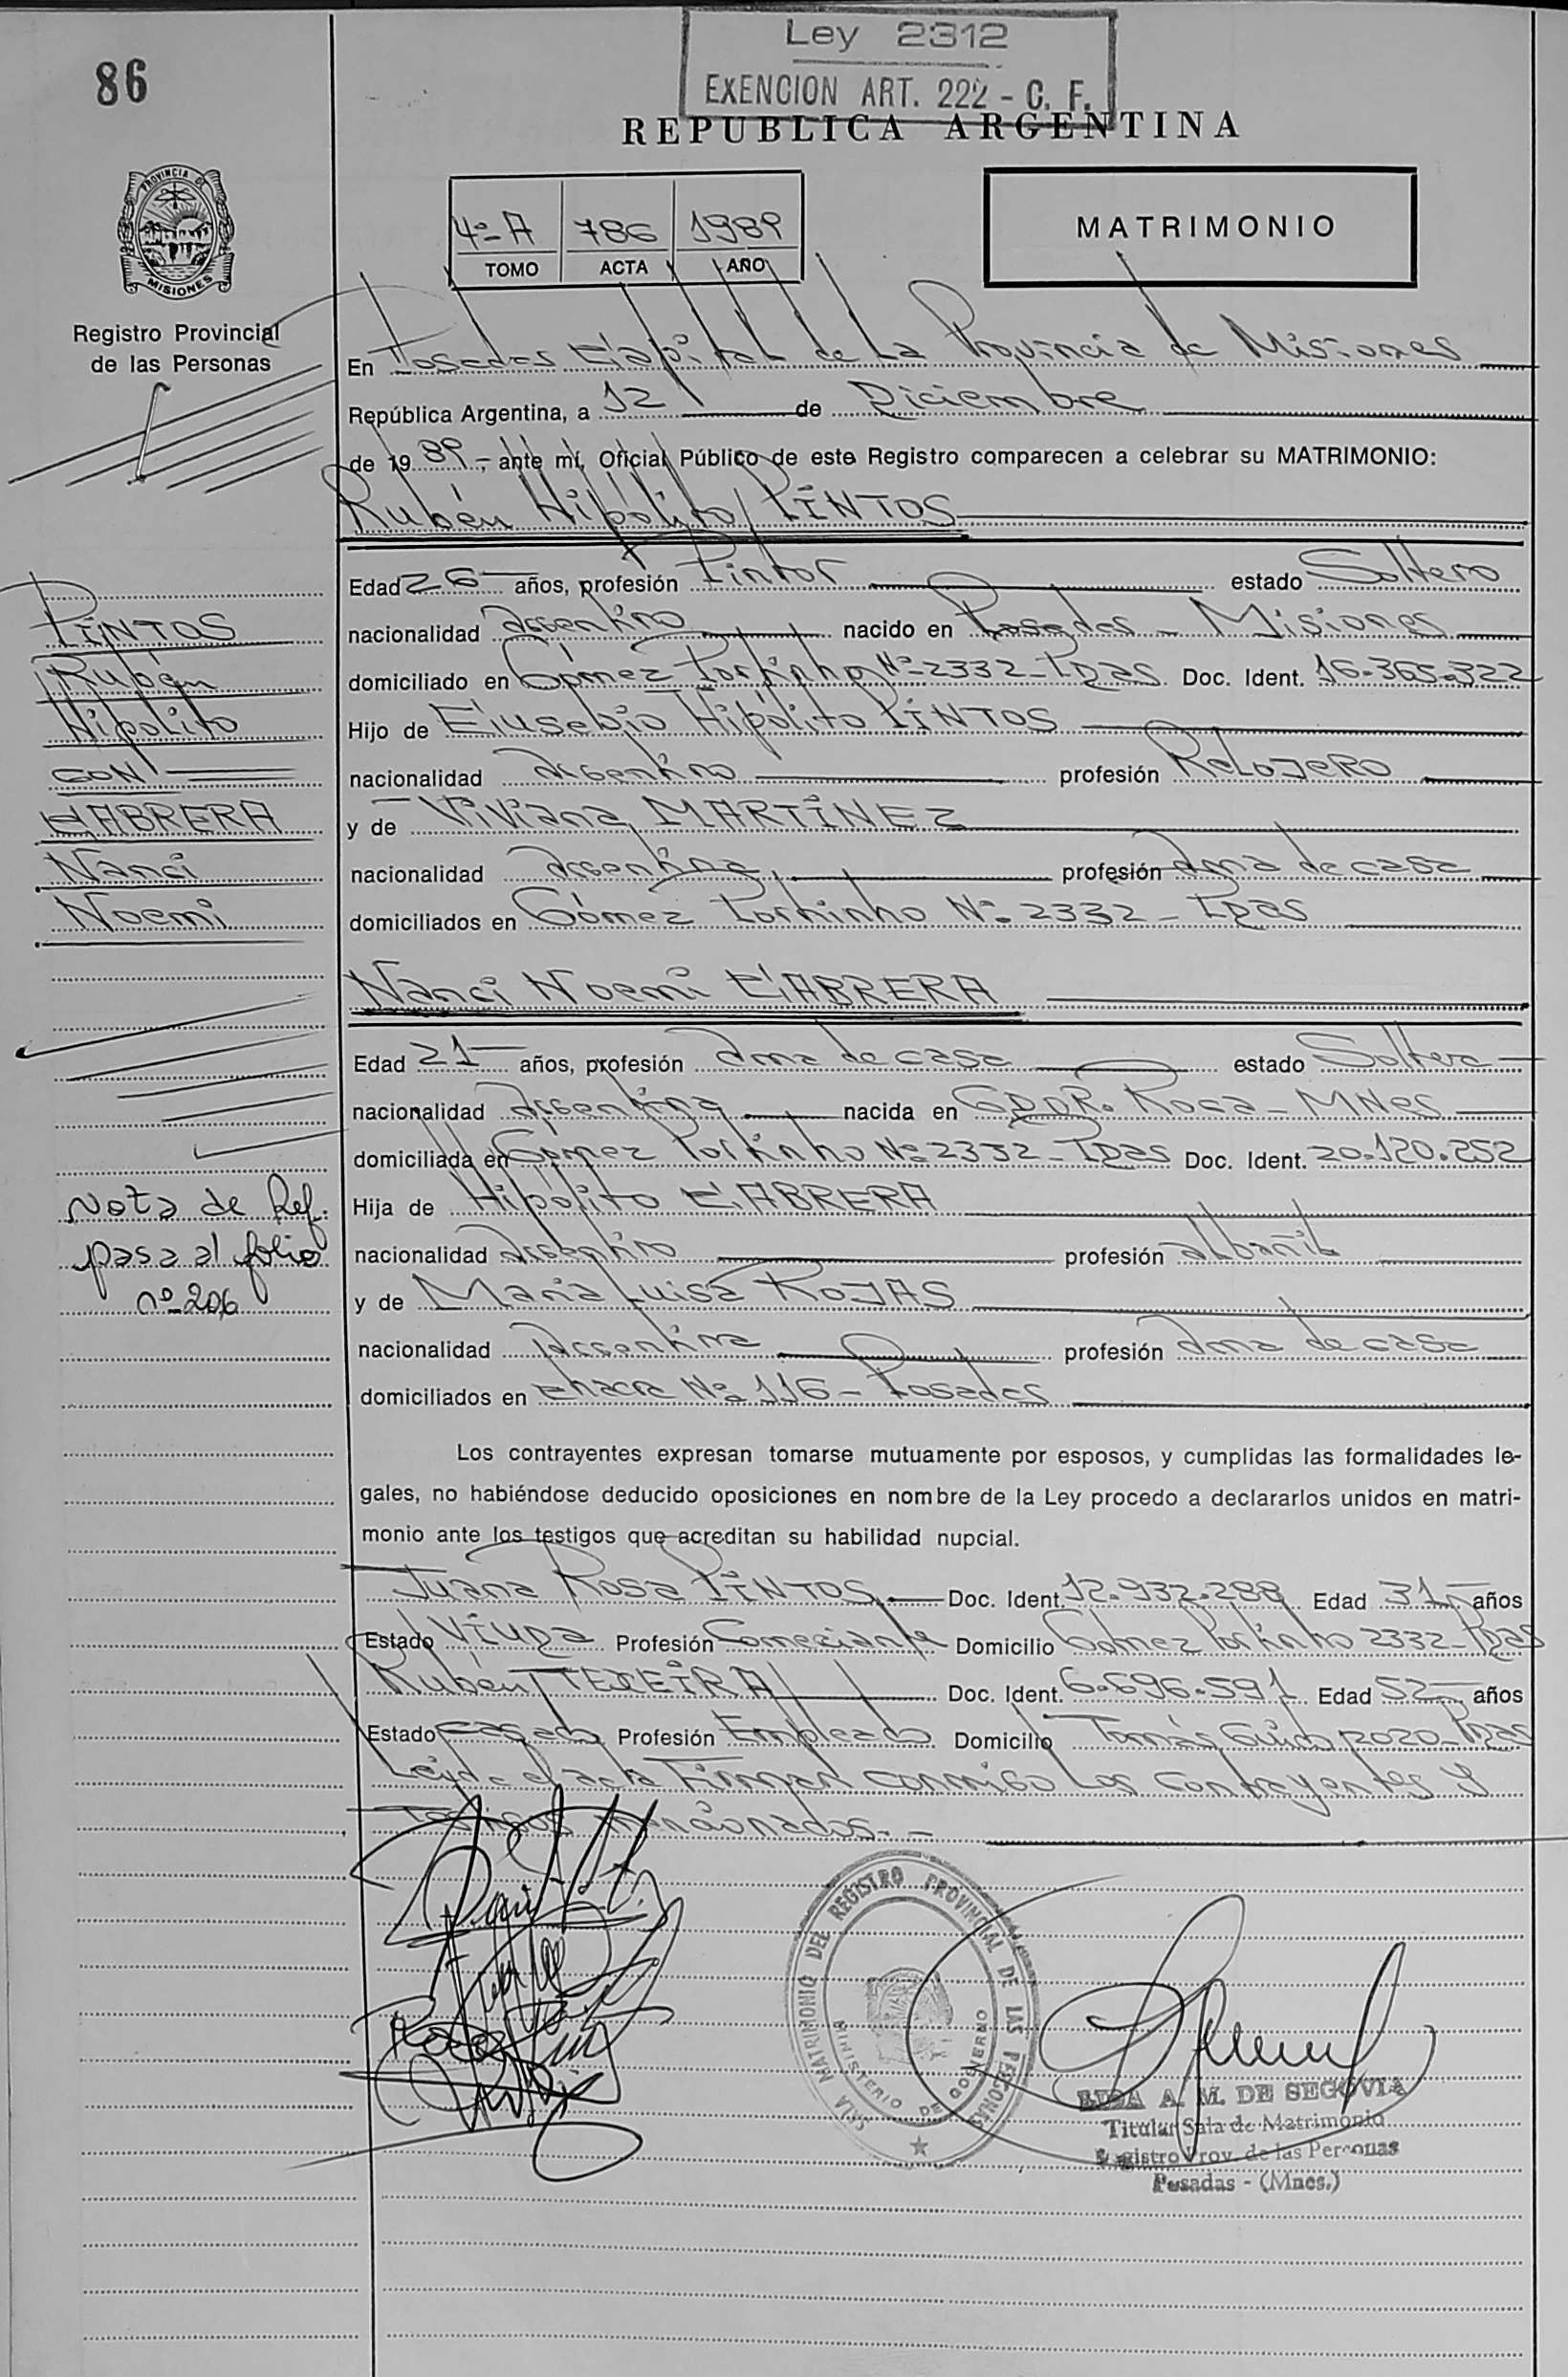 Ley 2312
EXENCION ART. 222 - C. F.
86
REPUBLICA ARGENTINA
PROVINCIA DE
MISIONES
Registro Provincial
de las Personas
4º-A 786 1989
TOMO ACTA AÑO
MATRIMONIO
En Posadas Capital de La Provincia de Misiones
República Argentina, a 12 de Diciembre
de 1989.-, ante mí, Oficial Público de este Registro comparecen a celebrar su MATRIMONIO:
Rubén Hipólito PINTOS
Edad 26 años, profesión Pintor estado Soltero
nacionalidad argentino nacido en Posadas - Misiones
domiciliado en Gómez Portinho Nº 2332 - Pdas. Doc. Ident. 16.365.322
Hijo de Eusebio Hipólito PINTOS
nacionalidad argentino profesión Relojero
y de Viviana MARTINEZ
nacionalidad argentina profesión ama de casa
domiciliados en Gómez Portinho Nº 2332 - Pdas
PINTOS
Rubén
Hipólito
CON
CABRERA
Nanci
Noemi
Nanci Noemi CABRERA
Edad 21 años, profesión ama de casa estado Soltera
nacionalidad argentina nacida en GDOR. Roca - MNES
domiciliada en Gómez Portinho Nº 2332 - Pdas Doc. Ident. 20.120.252
Hija de Hipólito CABRERA
nacionalidad argentino profesión albañil
y de Maria Luisa ROJAS
nacionalidad Argentina profesión ama de casa
domiciliados en chacra Nº 116 - Posadas
Nota de Ref.
pasa al folio
nº 206
Los contrayentes expresan tomarse mutuamente por esposos, y cumplidas las formalidades le-
gales, no habiéndose deducido oposiciones en nombre de la Ley procedo a declararlos unidos en matri-
monio ante los testigos que acreditan su habilidad nupcial.
Juana Rosa PINTOS Doc. Ident. 12.932.288 Edad 31 años
Estado Viuda Profesión Comerciante Domicilio Gómez Portinho 2332 - Pdas
Rubén TEXEIRA Doc. Ident. 6.696.591 Edad 52 años
Estado casado Profesión Empleado Domicilio Tomás Guido 2020 - Pdas
Leída el acta Firman conmigo Los contrayentes y
Testigos mencionados. -
SALA MATRIMONIO DEL REGISTRO PROVINCIAL DE LAS PERSONAS
MINISTERIO DE GOBIERNO
A. M. DE SEGOVIA
Titular Sala de Matrimonio
Registro Prov. de las Personas
Posadas - (Mnes.)